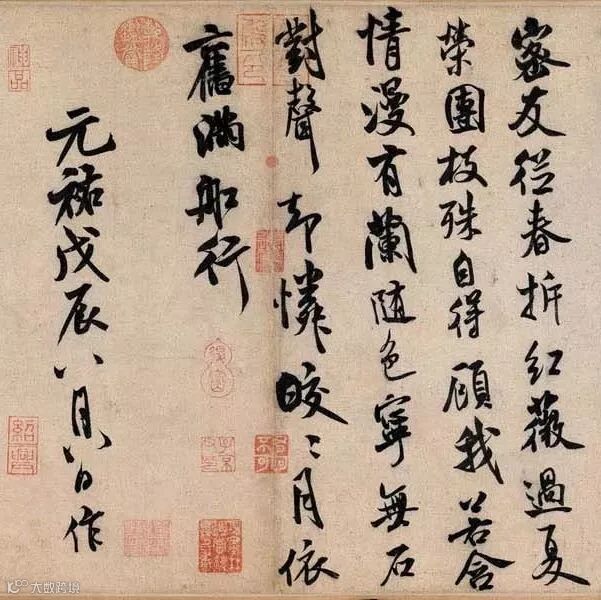 密友從春拆紅薇過夏
榮團枝殊自得顧我若含
情漫有蘭隨色寧無石
對聲却憐皎〻月依
舊滿船行
元祐戊辰八月八日作
神品
紹興
大数跨境